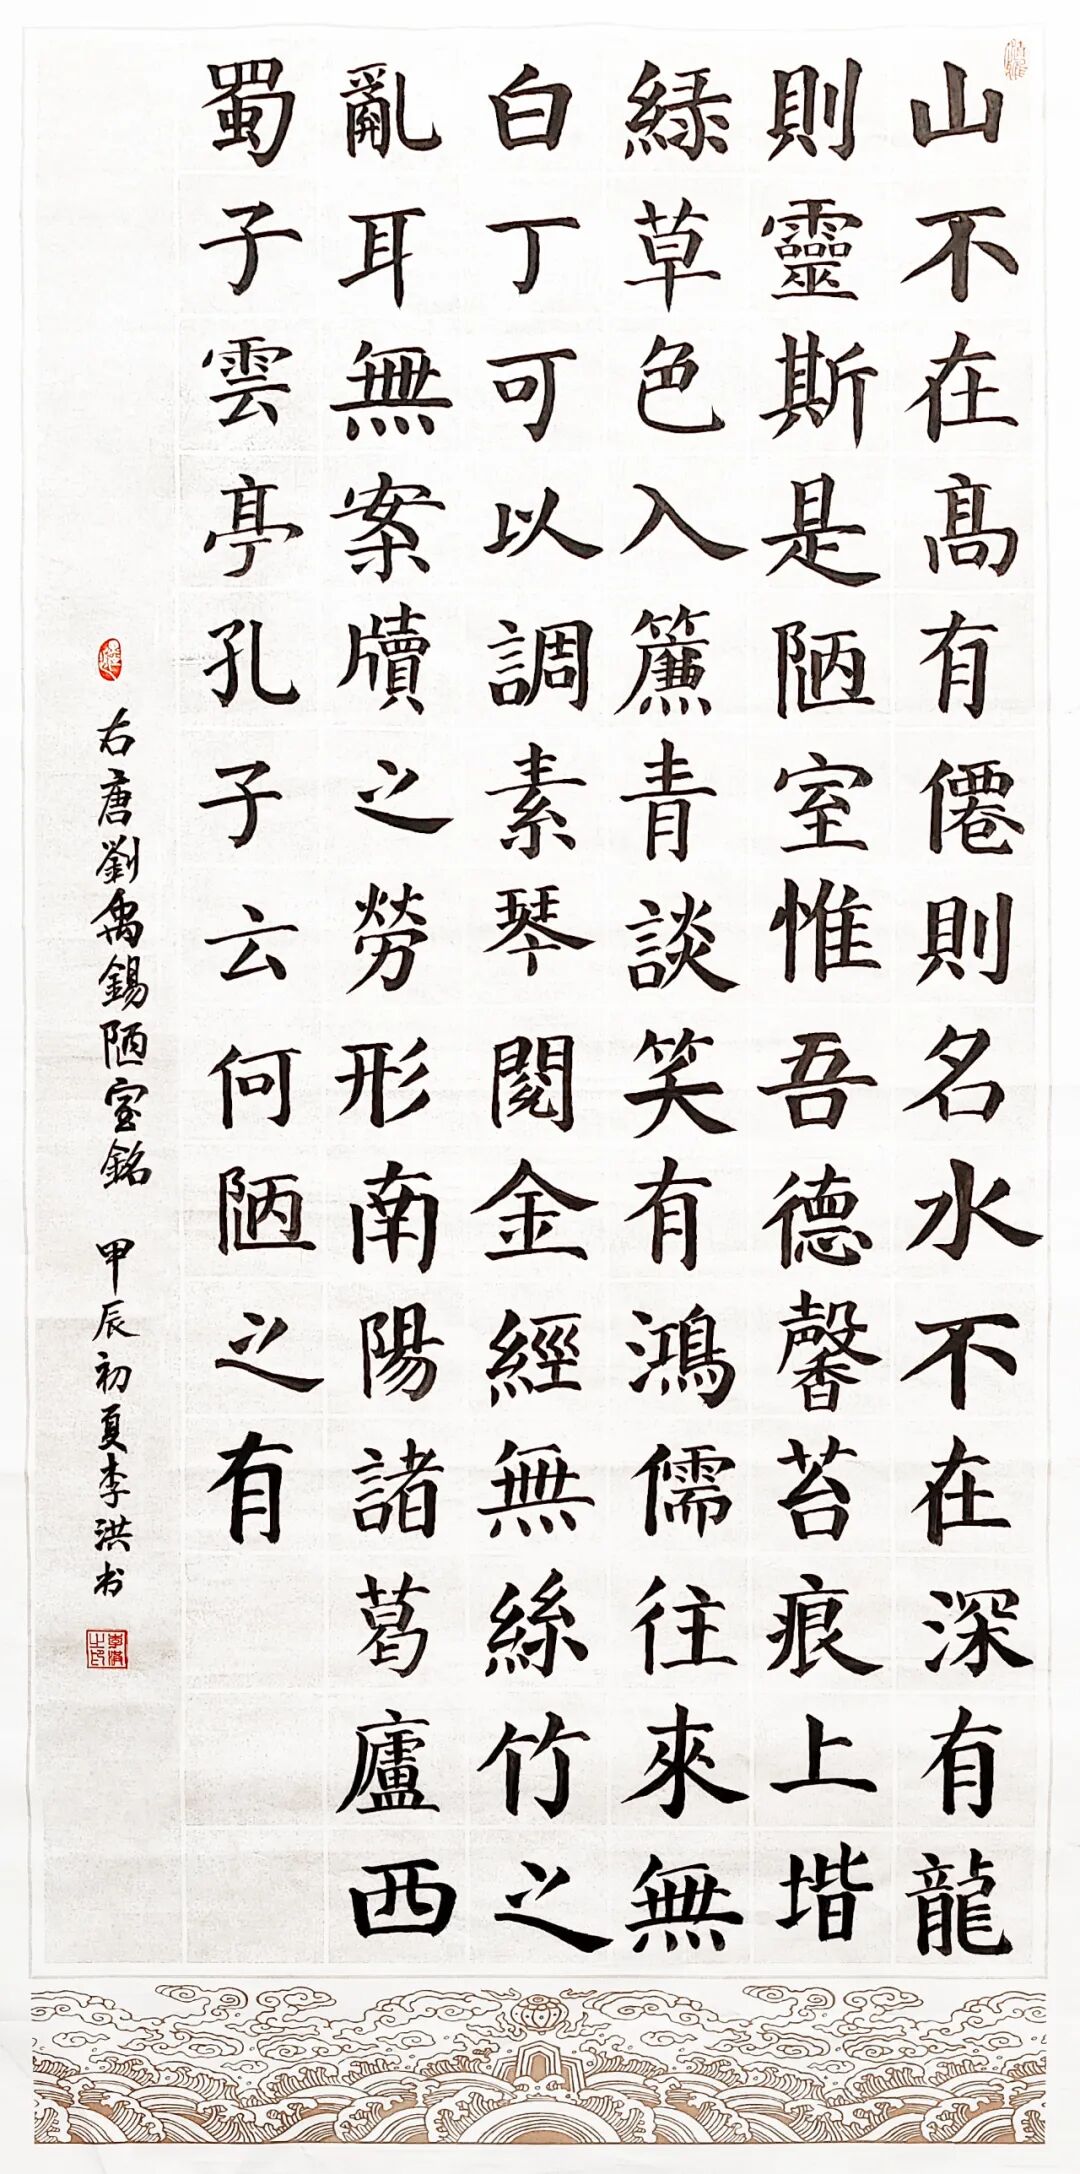 山不在高有僊則名水不在深有龍
則靈斯是陋室惟吾德馨苔痕上堦
緑草色入簾青談笑有鴻儒往來無
白丁可以調素琴閱金經無絲竹之
亂耳無案牘之勞形南陽諸葛廬西
蜀子雲亭孔子云何陋之有
右唐劉禹錫陋室銘 甲辰初夏李洪书
李洪之印